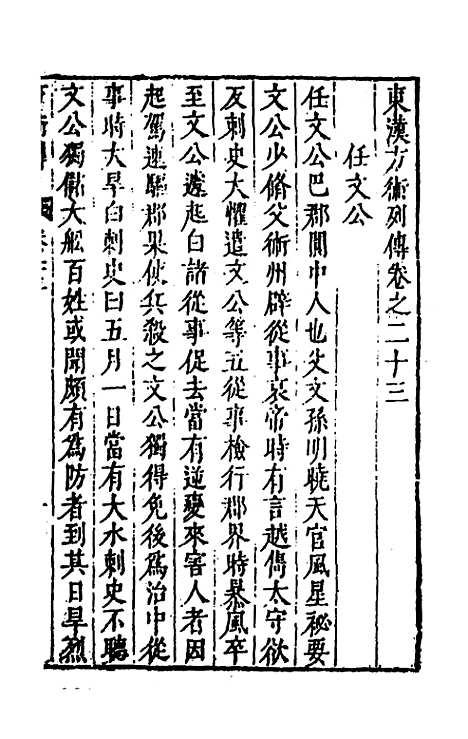 東漢方術列傳卷之二十三
任文公
任文公巴郡閬中人也父文孫明曉天官風星秘要
文公少脩父術州辟從事哀帝時有言越雋太守欲
反刺史大懼遣文公等五從事檢行郡界時暴風卒
至文公遽起白諸從事促去當有逆變來害人者因
起駕速驅郡果使兵殺之文公獨得免後爲治中從
事時大旱白刺史曰五月一日當有大水刺史不聽
文公獨儲大船百姓或聞頗有爲防者到其日旱烈